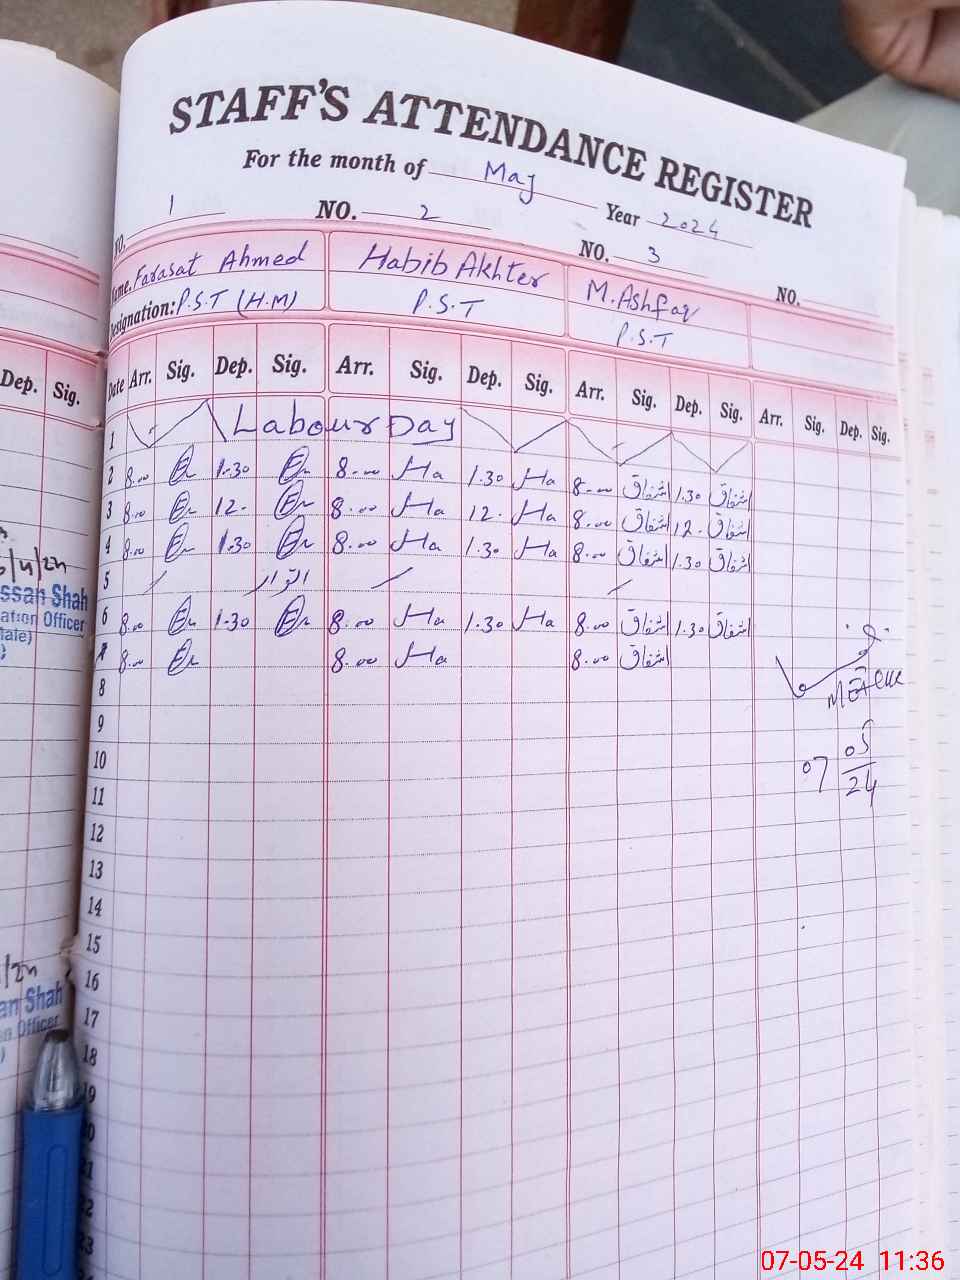 STAFF'S ATTENDANCE REGISTER
For the month of May Year 2024
NO. 1 NO. 2 NO. 3 NO.
Name. Farasat Ahmed Habib Akhter M. Ashfaq
Designation: P.S.T (H.M) P.S.T P.S.T
Dep. Sig. Date Arr. Sig. Dep. Sig. Arr. Sig. Dep. Sig. Arr. Sig. Dep. Sig. Arr. Sig. Dep. Sig.
1 Labour Day
2 8.00 1.30 8.00 Ha 1.30 Ha 8.00 اشفاق 1.30 اشفاق
3 8.00 12. 8.00 Ha 12. Ha 8.00 اشفاق 12. اشفاق
4 8.00 1.30 8.00 Ha 1.30 Ha 8.00 اشفاق 1.30 اشفاق
5 اتوار
6 8.00 1.30 8.00 Ha 1.30 Ha 8.00 اشفاق 1.30 اشفاق
8.00 8.00 Ha 8.00 اشفاق
8
9
10
11
12
13
14
15
16
17
18
07 05
24
ssan Shah
ation Officer
an Shah
on Officer
07-05-24 11:36